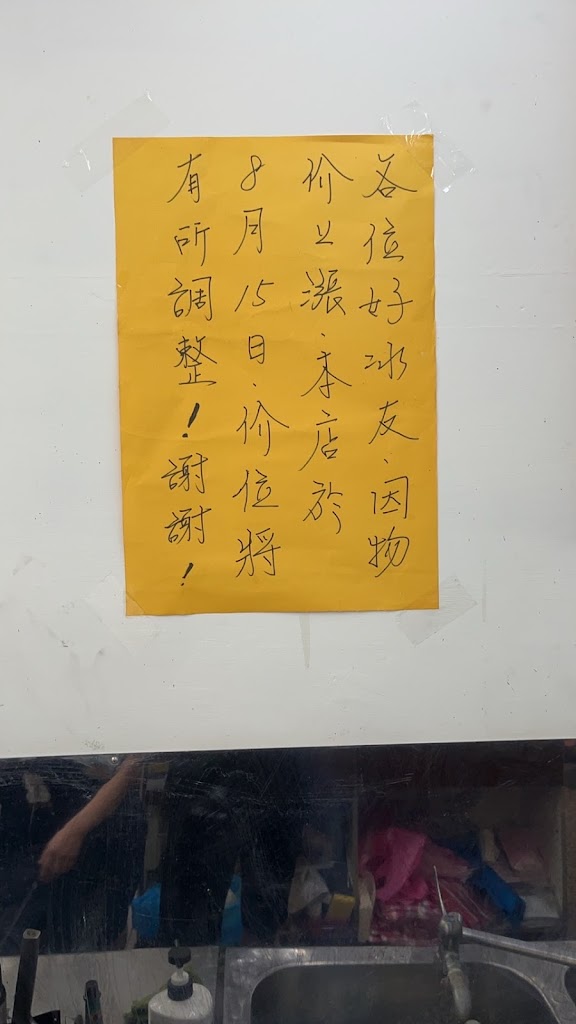 各位好冰友、因物
价上漲、本店於
8月15日、价位將
有所調整！謝謝！